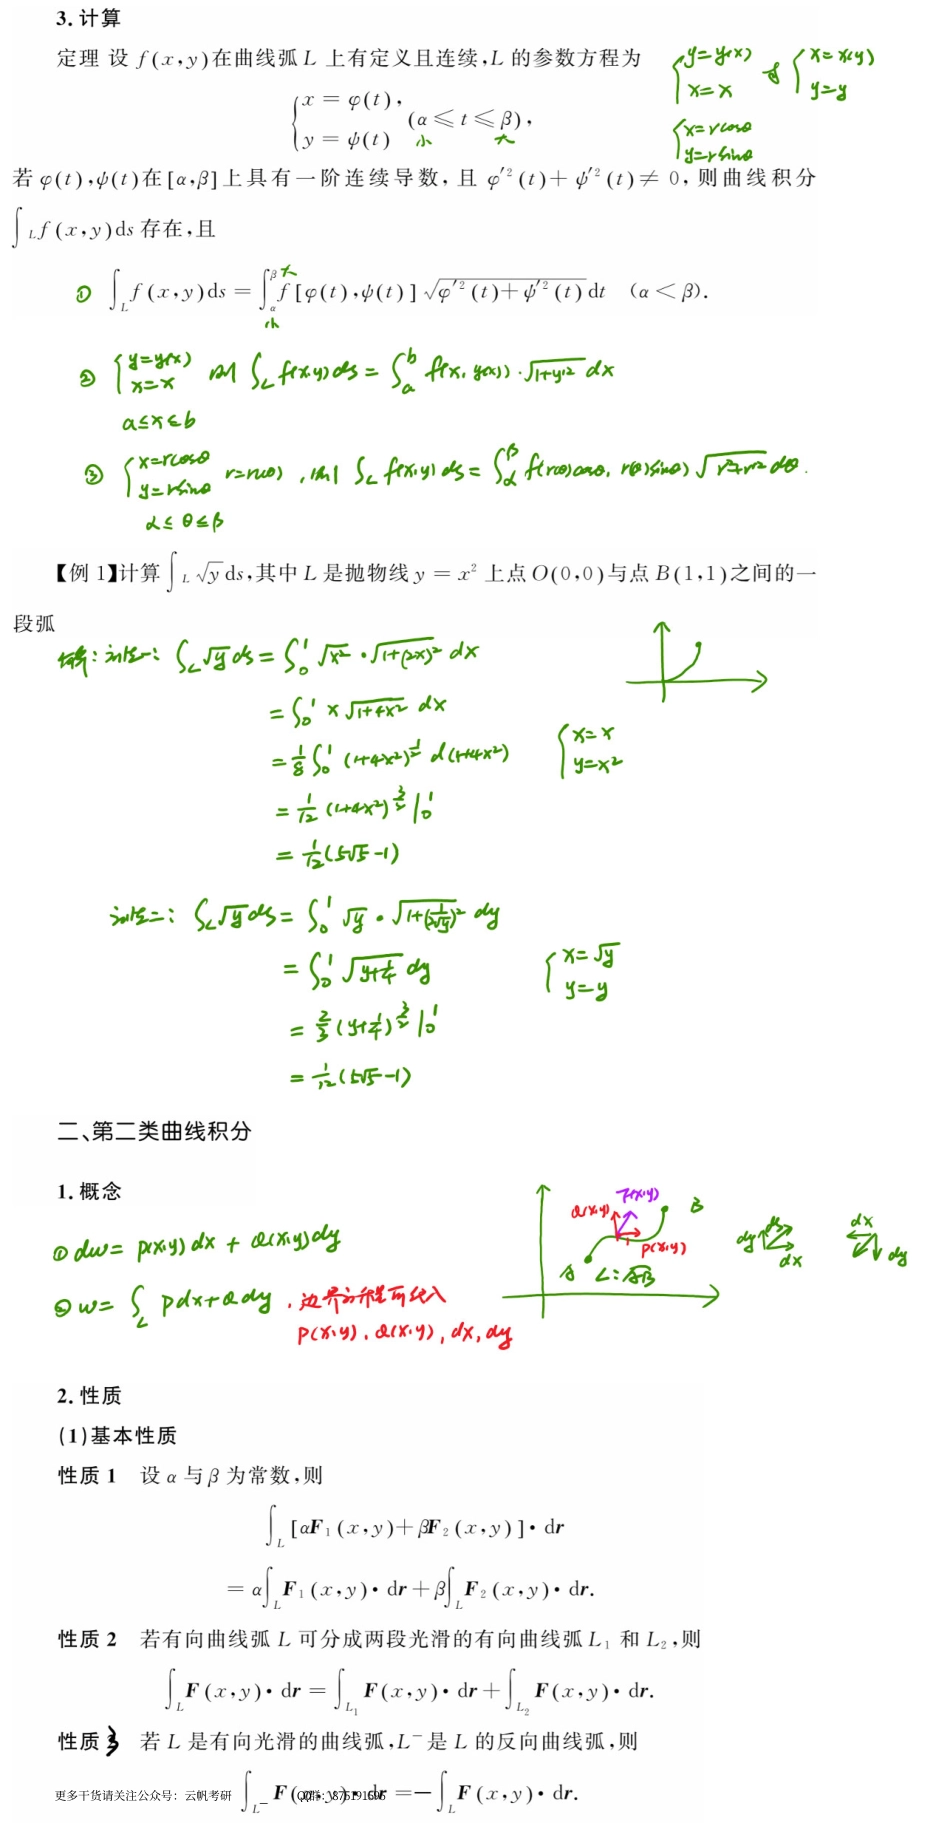 3.计算
定理 设 f(x,y)在曲线弧 L 上有定义且连续,L 的参数方程为
{y=y(x) x=x 或 {x=x(y) y=y
{x = φ(t), y = ψ(t) (α ≤ t ≤ β),
小 大
{x=rcosθ y=rsinθ
若 φ(t),ψ(t)在[α,β]上具有一阶连续导数,且 φ′²(t)+ψ′²(t)≠ 0,则曲线积分
∫_L f(x,y)ds 存在,且
① ∫_L f(x,y)ds = ∫_α^β f[φ(t),ψ(t)]√(φ′²(t)+ψ′²(t))dt (α < β).
大
小
② {y=y(x) x=x 则 ∫_L f(x,y)ds = ∫_a^b f(x,y(x))·√(1+y′²) dx
a≤x≤b
③ {x=rcosθ y=rsinθ r=r(θ),则 ∫_L f(x,y)ds = ∫_α^β f(r(θ)cosθ, r(θ)sinθ)√(r²+r′²)dθ.
α≤θ≤β
【例 1】计算∫_L √y ds,其中 L 是抛物线 y = x² 上点 O(0,0)与点 B(1,1)之间的一
段弧
解:方法一: ∫_L √y ds = ∫_0^1 √x² · √(1+(2x)²) dx
= ∫_0^1 x√(1+4x²) dx
= 1/8 ∫_0^1 (1+4x²)^(1/2) d(1+4x²)
{x=x y=x²
= 1/12 (1+4x²)^(3/2) |_0^1
= 1/12(5√5-1)
方法二: ∫_L √y ds = ∫_0^1 √y · √(1+(1/(2√y))²) dy
= ∫_0^1 √(y+1/4) dy
{x=√y y=y
= 2/3 (y+1/4)^(3/2) |_0^1
= 1/12(5√5-1)
二、第二类曲线积分
1.概念
① dw= P(x,y)dx + Q(x,y)dy
Q(x,y) F(x,y) B
P(x,y)
A L:AB
dy ds dx
dx dy
② w= ∫_L Pdx+Qdy ,边界方程可代入
P(x,y), Q(x,y), dx, dy
2.性质
(1)基本性质
性质 1 设 α 与 β 为常数,则
∫_L [αF₁(x,y)+βF₂(x,y)]·dr
= α∫_L F₁(x,y)·dr+β∫_L F₂(x,y)·dr.
性质 2 若有向曲线弧 L 可分成两段光滑的有向曲线弧 L₁ 和 L₂,则
∫_L F(x,y)·dr = ∫_L₁ F(x,y)·dr+∫_L₂ F(x,y)·dr.
性质 3 若 L 是有向光滑的曲线弧,L⁻是 L 的反向曲线弧,则
∫_L⁻ F(x,y)·dr =-∫_L F(x,y)·dr.
更多干货请关注公众号：云帆考研